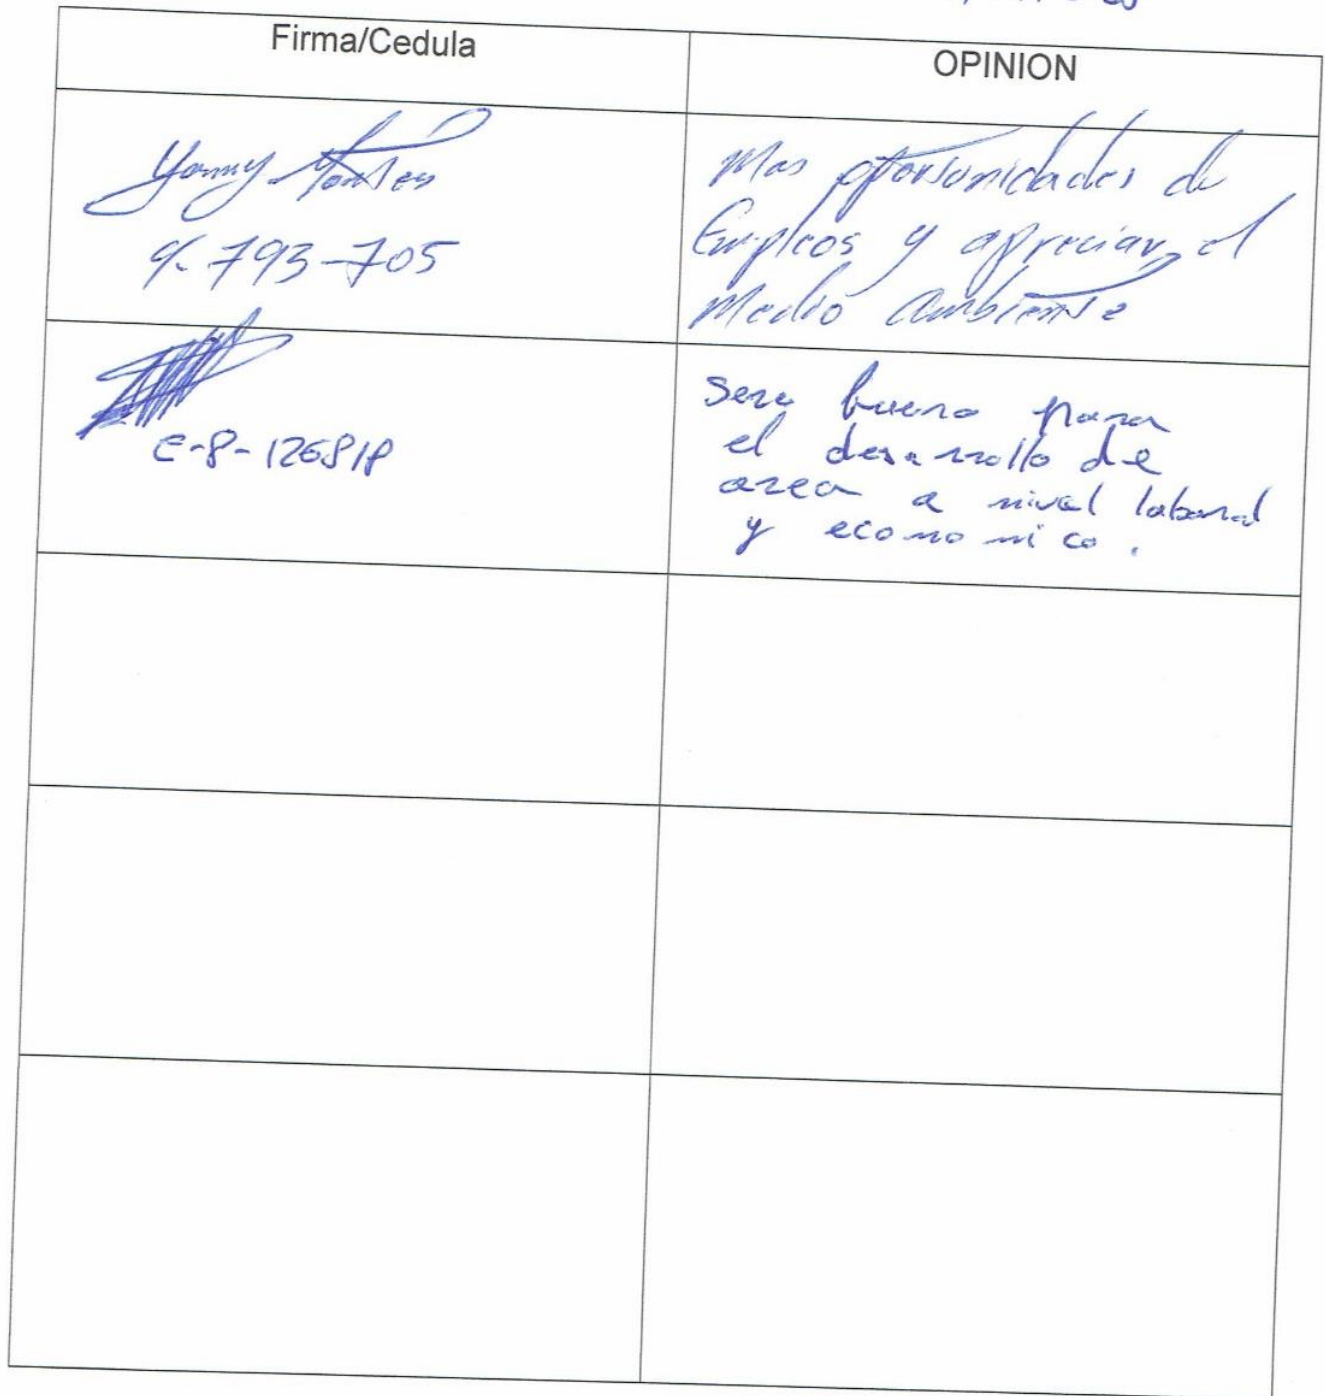 Firma/Cedula
OPINION
Yonny
793-705
Mas oportunidades de
Empleos y apreciar el
Medio ambiente
E-8-126818
Sera bueno para
el desarrollo de
area a nivel laboral
y economico.